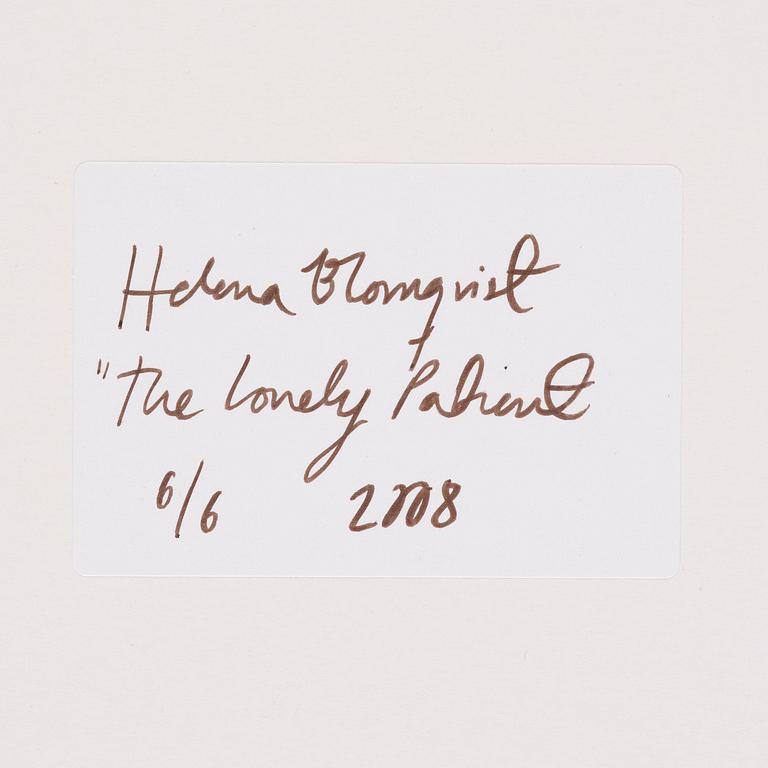 Helena Blomqvist
"The Lonely Patient
6/6 2008